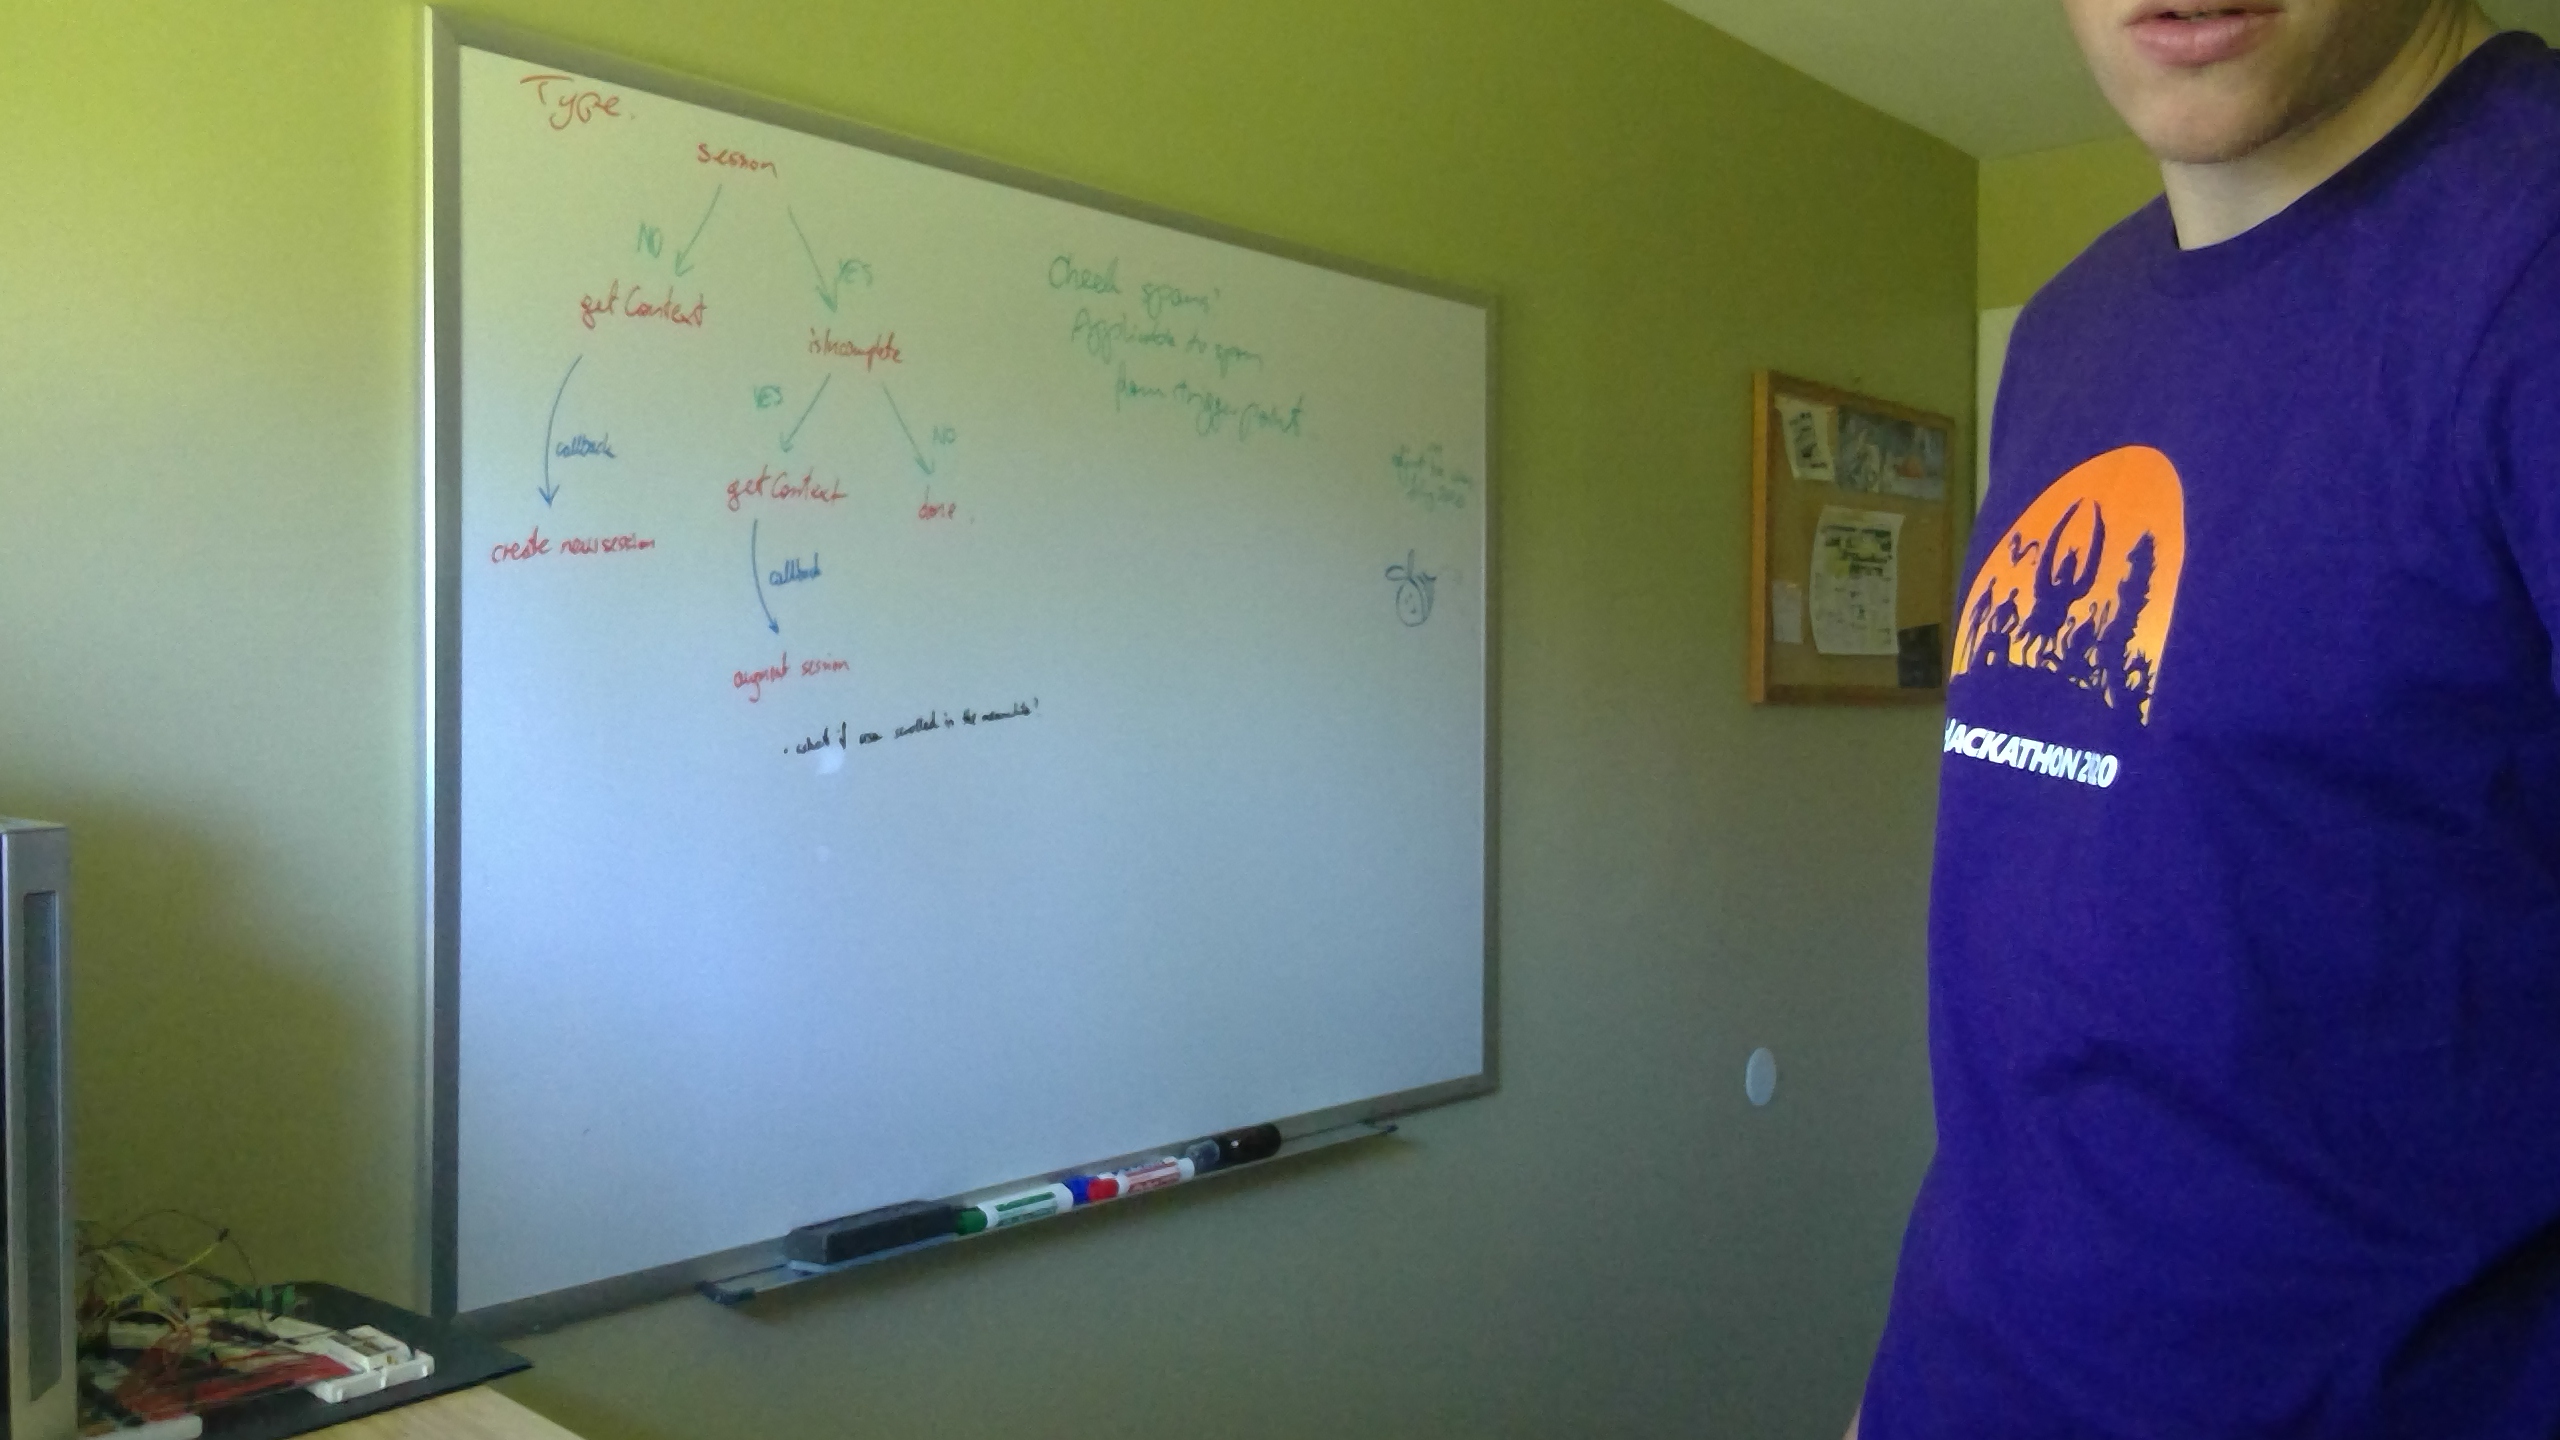 Type.
session
NO
YES
get Context
isIncomplete
callback
YES
NO
create new session
get Context
done.
callback
augment session
• what if user scrolled in the meanwhile?
Check spans?
Applicable to span
from trigger point.
HACKATHON 2020